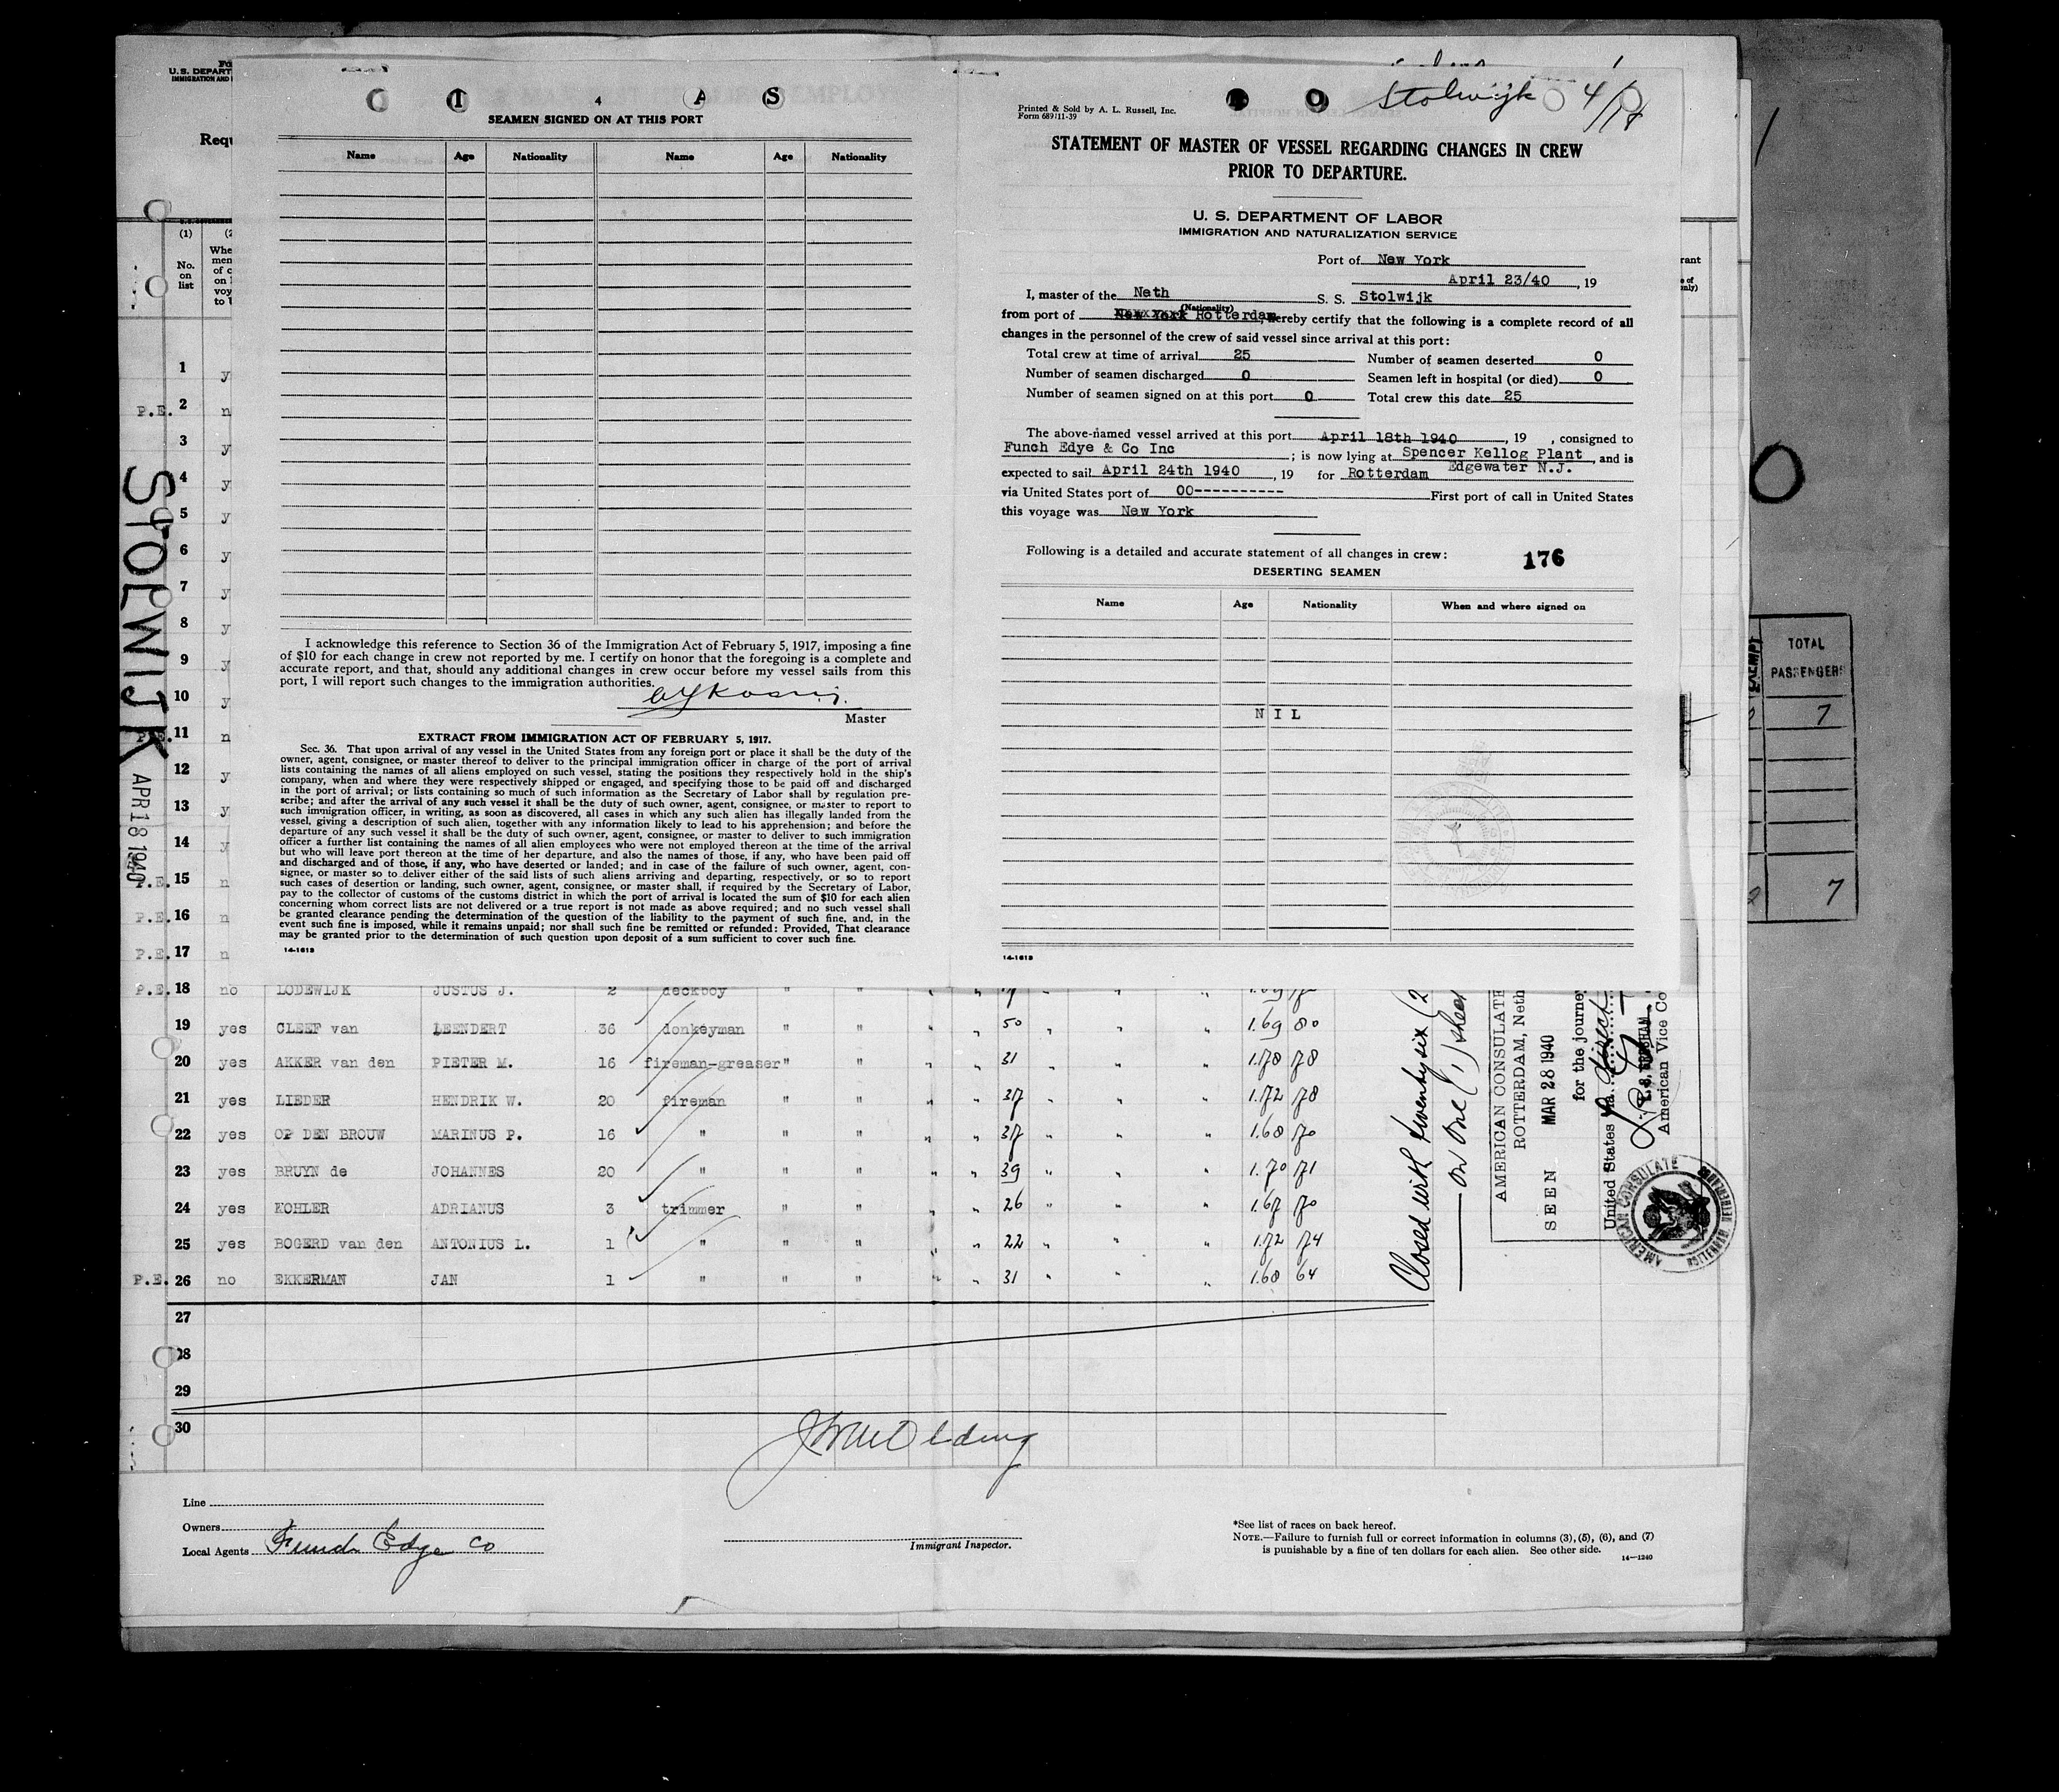 Fo
U. S. DEPART
IMMIGRATION AND
Requ
(1)
No.
on
list
Whe
men
of c
on
voy
to U
1 y
P.E. 2 n
3 y
4 y
5 y
6 y
7 y
8 y
9 y
10 y
11 n
12 y
13 y
14 y
P.E. 15 n
P.E. 16 n
P.E. 17 n
STOLWIJK
APR 18 1940
C I 4 A S
SEAMEN SIGNED ON AT THIS PORT
Name Age Nationality Name Age Nationality
I acknowledge this reference to Section 36 of the Immigration Act of February 5, 1917, imposing a fine
of $10 for each change in crew not reported by me. I certify on honor that the foregoing is a complete and
accurate report, and that, should any additional changes in crew occur before my vessel sails from this
port, I will report such changes to the immigration authorities.
Master
EXTRACT FROM IMMIGRATION ACT OF FEBRUARY 5, 1917.
Sec. 36. That upon arrival of any vessel in the United States from any foreign port or place it shall be the duty of the
owner, agent, consignee, or master thereof to deliver to the principal immigration officer in charge of the port of arrival
lists containing the names of all aliens employed on such vessel, stating the positions they respectively hold in the ship's
company, when and where they were respectively shipped or engaged, and specifying those to be paid off and discharged
in the port of arrival; or lists containing so much of such information as the Secretary of Labor shall by regulation pre-
scribe; and after the arrival of any such vessel it shall be the duty of such owner, agent, consignee, or master to report to
such immigration officer, in writing, as soon as discovered, all cases in which any such alien has illegally landed from the
vessel, giving a description of such alien, together with any information likely to lead to his apprehension; and before the
departure of any such vessel it shall be the duty of such owner, agent, consignee, or master to deliver to such immigration
officer a further list containing the names of all alien employees who were not employed thereon at the time of the arrival
but who will leave port thereon at the time of her departure, and also the names of those, if any, who have been paid off
and discharged and of those, if any, who have deserted or landed; and in case of the failure of such owner, agent, con-
signee, or master so to deliver either of the said lists of such aliens arriving and departing, respectively, or so to report
such cases of desertion or landing, such owner, agent, consignee, or master shall, if required by the Secretary of Labor,
pay to the collector of customs of the customs district in which the port of arrival is located the sum of $10 for each alien
concerning whom correct lists are not delivered or a true report is not made as above required; and no such vessel shall
be granted clearance pending the determination of the question of the liability to the payment of such fine, and, in the
event such fine is imposed, while it remains unpaid; nor shall such fine be remitted or refunded: Provided, That clearance
may be granted prior to the determination of such question upon deposit of a sum sufficient to cover such fine.
14-1613
Stolwijk 4/18
Printed & Sold by A. L. Russell, Inc.
Form 689/11-39
STATEMENT OF MASTER OF VESSEL REGARDING CHANGES IN CREW
PRIOR TO DEPARTURE.
U. S. DEPARTMENT OF LABOR
IMMIGRATION AND NATURALIZATION SERVICE
Port of New York
April 23/40, 19
I, master of the Neth S. S. Stolwijk
(Nationality)
from port of New York Rotterdam, hereby certify that the following is a complete record of all
changes in the personnel of the crew of said vessel since arrival at this port:
Total crew at time of arrival 25 Number of seamen deserted 0
Number of seamen discharged 0 Seamen left in hospital (or died) 0
Number of seamen signed on at this port 0 Total crew this date 25
The above-named vessel arrived at this port April 18th 1940, 19 , consigned to
Funch Edye & Co Inc; is now lying at Spencer Kellog Plant, and is
Edgewater N.J.
expected to sail April 24th 1940, 19 for Rotterdam
via United States port of 00---------- First port of call in United States
this voyage was New York
Following is a detailed and accurate statement of all changes in crew: 176
DESERTING SEAMEN
Name Age Nationality When and where signed on
N I L
14-1613
rant
TOTAL
PASSENGERS
EXEMPT
7
2 7
P.E. 18 no LODEWIJK JUSTUS J. 2 deckboy " "
19 yes CLEEF van LEENDERT 36 donkeyman " " " " 50 " " " 1.69 80
20 yes AKKER van den PIETER M. 16 fireman-greaser " " " " 31 " " " 1.78 78
21 yes LIEDER HENDRIK W. 20 fireman " " " " 37 " " " 1.72 78
22 yes OP DEN BROUW MARINUS P. 16 " " " " " 37 " " " 1.68 70
23 yes BRUYN de JOHANNES 20 " " " " " 39 " " " 1.70 71
24 yes KOHLER ADRIANUS 3 trimmer " " " " 26 " " " 1.67 70
25 yes BOGERD van den ANTONIUS L. 1 " " " " " 22 " " " 1.72 74
P.E. 26 no EKKERMAN JAN 1 " " " " " 31 " " " 1.68 64
27
28
29
30
Closed with twenty six (2
on one (1) sheet
AMERICAN CONSULATE
ROTTERDAM, Neth
SEEN MAR 28 1940
for the journey
United States via direct
American Vice Co
AMERICAN CONSULATE
Line
Owners
Local Agents Funch Edye Co
Immigrant Inspector.
*See list of races on back hereof.
NOTE.—Failure to furnish full or correct information in columns (3), (5), (6), and (7)
is punishable by a fine of ten dollars for each alien. See other side.
14—1240